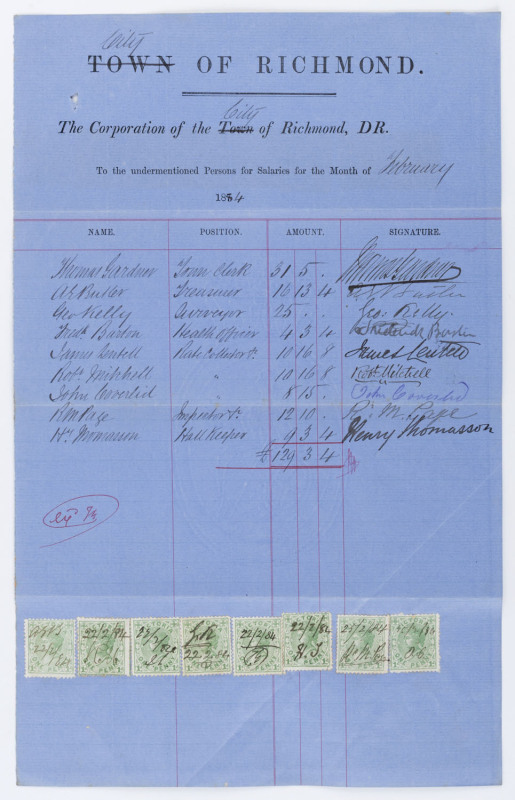 City
TOWN OF RICHMOND.
City
The Corporation of the Town of Richmond, DR.
To the undermentioned Persons for Salaries for the Month of February
1884
NAME. POSITION. AMOUNT. SIGNATURE.
Thomas Gardner Town Clerk 31 5 .
A E Butler Treasurer 16 13 4 Butler
Geo Kelly Surveyor 25 . . Geo: Kelly.
Fredk Barton Health Officer 4 3 4 Frederick Barton
James Lentell Rate Collector &c 10 16 8 James Lentell
Robt Mitchell " 10 16 8 Robt Mitchell
John Coverlid 8 15 . John Coverlid
R M Page Inspector &c 12 10 . R. M. Page
Hy Thomasson Hall Keeper 9 3 4 Henry Thomasson
£ 129 3 4
22/2/84 22/2/84 22/2/84 G K 22.2.84 22/2/84 22/2/84